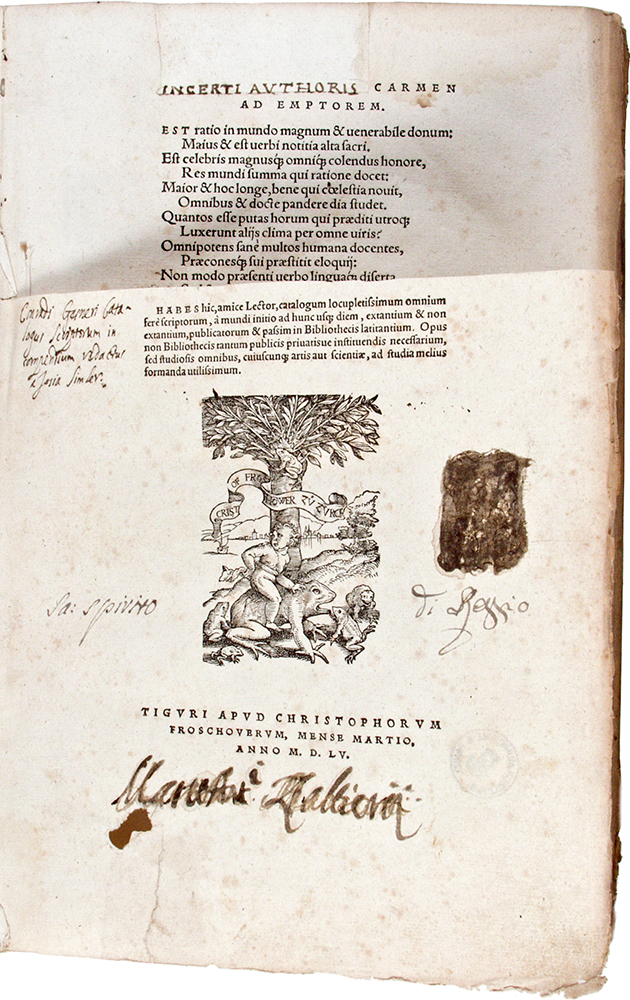 INCERTI AVTHORIS CARMEN
AD EMPTOREM.
EST ratio in mundo magnum & uenerabile donum:
Maius & est uerbi notitia alta sacri.
Est celebris magnusq́; omniq́; colendus honore,
Res mundi summa qui ratione docet:
Maior & hoc longe, bene qui cœlestia nouit,
Omnibus & docte pandere dia studet.
Quantos esse putas horum qui præditi utroq́;
Luxerunt alijs clima per omne uiris?
Omnipotens sanè multos humana docentes,
Præconesq́; sui præstitit eloquij:
Non modo præsenti uerbo linguaq́; diserta
Conradi Gesneri Cata-
logus Scriptorum in
compendium redactus
a Josia Simler.
HABES hic, amice Lector, catalogum locupletissimum omnium
ferè scriptorum, à mundi initio ad hunc usq; diem, extantium & non
extantium, publicatorum & passim in Bibliothecis latitantium. Opus
non Bibliothecis tantum publicis priuatisue instituendis necessarium,
sed studiosis omnibus, cuiuscunq; artis aut scientiæ, ad studia melius
formanda utilissimum.
CRISTOF FROSCHOWER ZV ZVRICH
Sto: Spirito
di Reggio
TIGVRI APVD CHRISTOPHORVM
FROSCHOVERVM, MENSE MARTIO,
ANNO M. D. LV.